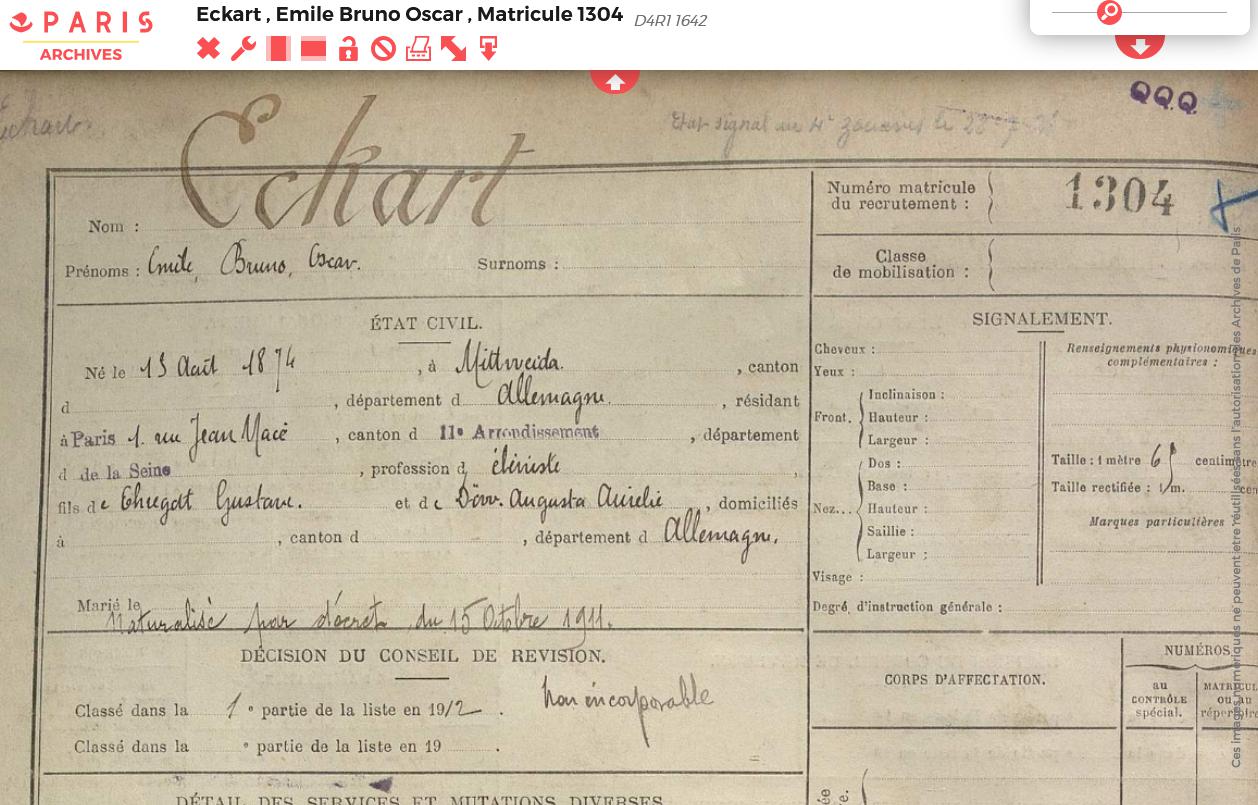 PARIS
ARCHIVES
Eckart , Emile Bruno Oscar , Matricule 1304 D4R1 1642
Eckart
QQQ
Etat signal au 4e zouaves le
Eckart
Nom :
Prénoms : Emile, Bruno, Oscar. Surnoms :
Numéro matricule du recrutement : 1304
Classe de mobilisation :
ÉTAT CIVIL.
Né le 13 Août 1874, à Mittweida., canton
d , département d Allemagne., résidant
à Paris 1. rue Jean Macé, canton d 11e Arrondissement, département
d de la Seine, profession d ébéniste,
fils de Gustave. et de Augusta Aurelie, domiciliés
à , canton d , département d Allemagne.
Marié le
Naturalisé par décret du 15 Octobre 1911.
SIGNALEMENT.
Cheveux :
Yeux :
Front. Inclinaison :
Hauteur :
Largeur :
Nez... Dos :
Base :
Hauteur :
Saillie :
Largeur :
Visage :
Degré d'instruction générale :
Renseignements physionomiques
complémentaires :
Taille : 1 mètre centimètre
Taille rectifiée : 1 m. cen
Marques particulières
DÉCISION DU CONSEIL DE REVISION.
Classé dans la 1e partie de la liste en 1912. Non incorporable
Classé dans la e partie de la liste en 19 .
CORPS D'AFFECTATION.
NUMÉROS
au
CONTRÔLE
spécial.
MATRICUL
ou au
répertoire
DÉTAIL DES SERVICES ET MUTATIONS DIVERSES
Ces images numériques ne peuvent être réutilisées sans l'autorisation des Archives de Paris